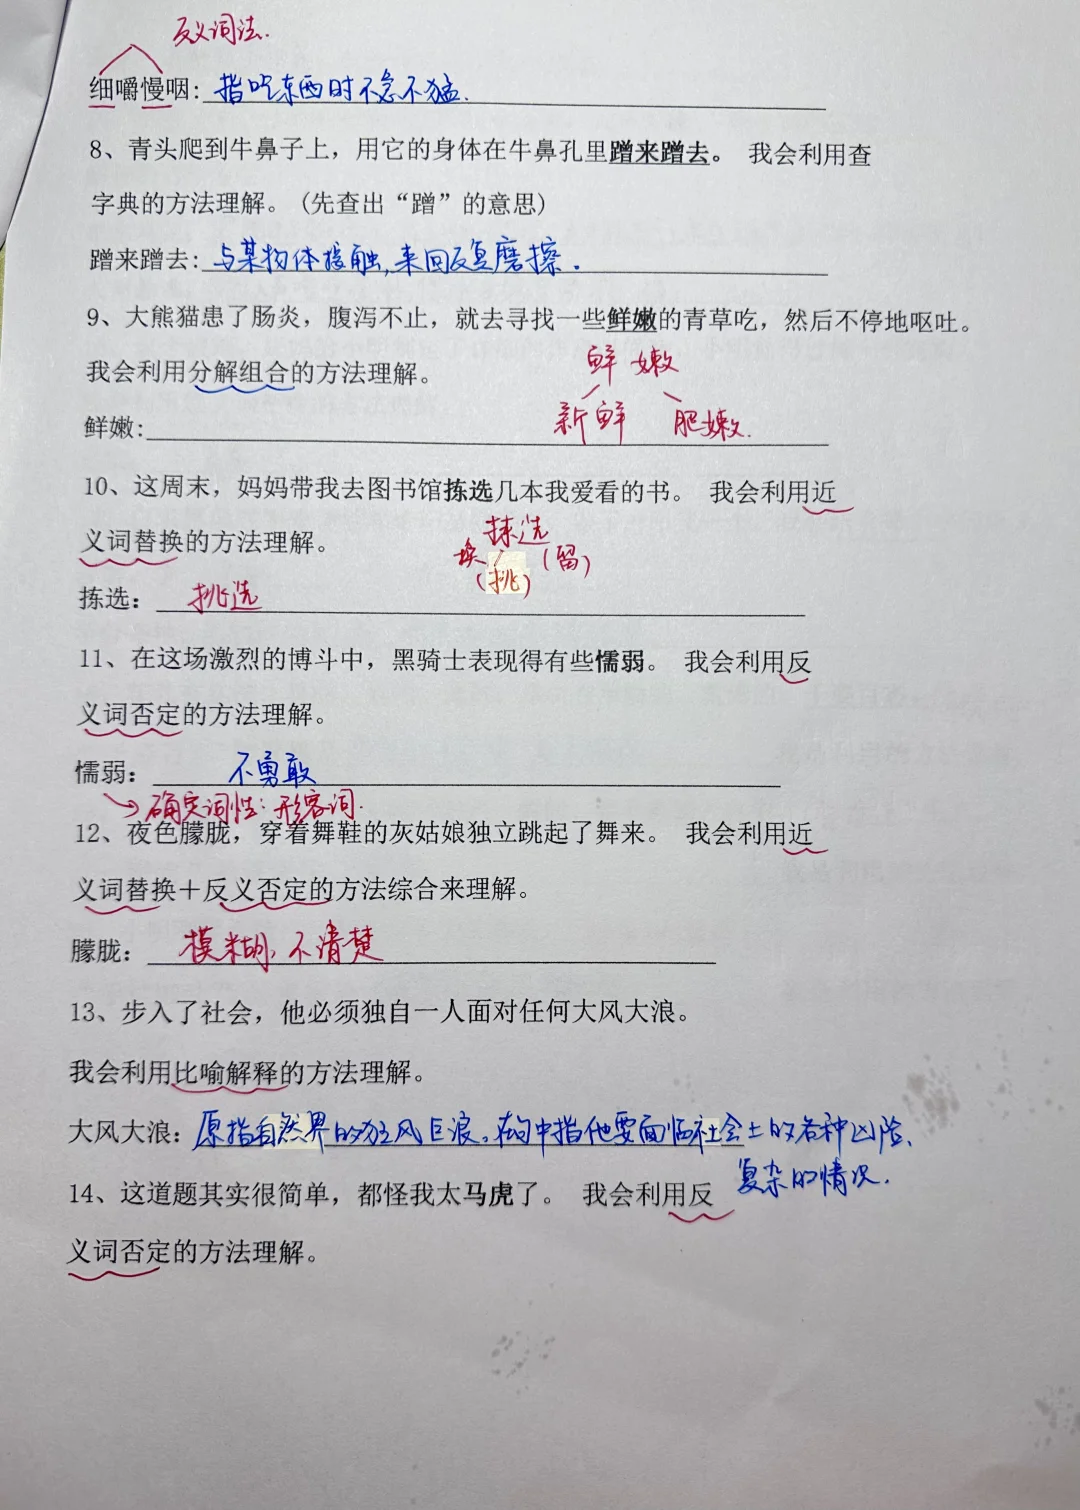 反义词法.
细嚼慢咽: 指吃东西时不急不猛.
8、青头爬到牛鼻子上，用它的身体在牛鼻孔里蹭来蹭去。 我会利用查
字典的方法理解。（先查出“蹭”的意思)
蹭来蹭去: 与某物体接触,来回反复磨擦.
9、大熊猫患了肠炎，腹泻不止，就去寻找一些鲜嫩的青草吃，然后不停地呕吐。
鲜 嫩
我会利用分解组合的方法理解。
新鲜 肥嫩.
鲜嫩:
10、这周末，妈妈带我去图书馆拣选几本我爱看的书。 我会利用近
拣选
义词替换的方法理解。
换 (挑) (留)
拣选： 挑选
11、在这场激烈的博斗中，黑骑士表现得有些懦弱。 我会利用反
义词否定的方法理解。
懦弱： 不勇敢
确定词性: 形容词.
12、夜色朦胧，穿着舞鞋的灰姑娘独立跳起了舞来。 我会利用近
义词替换＋反义否定的方法综合来理解。
朦胧： 模糊, 不清楚
13、步入了社会，他必须独自一人面对任何大风大浪。
我会利用比喻解释的方法理解。
大风大浪: 原指自然界的狂风巨浪。在句中指他要面临社会上的各种凶险、
复杂的情况.
14、这道题其实很简单，都怪我太马虎了。 我会利用反
义词否定的方法理解。